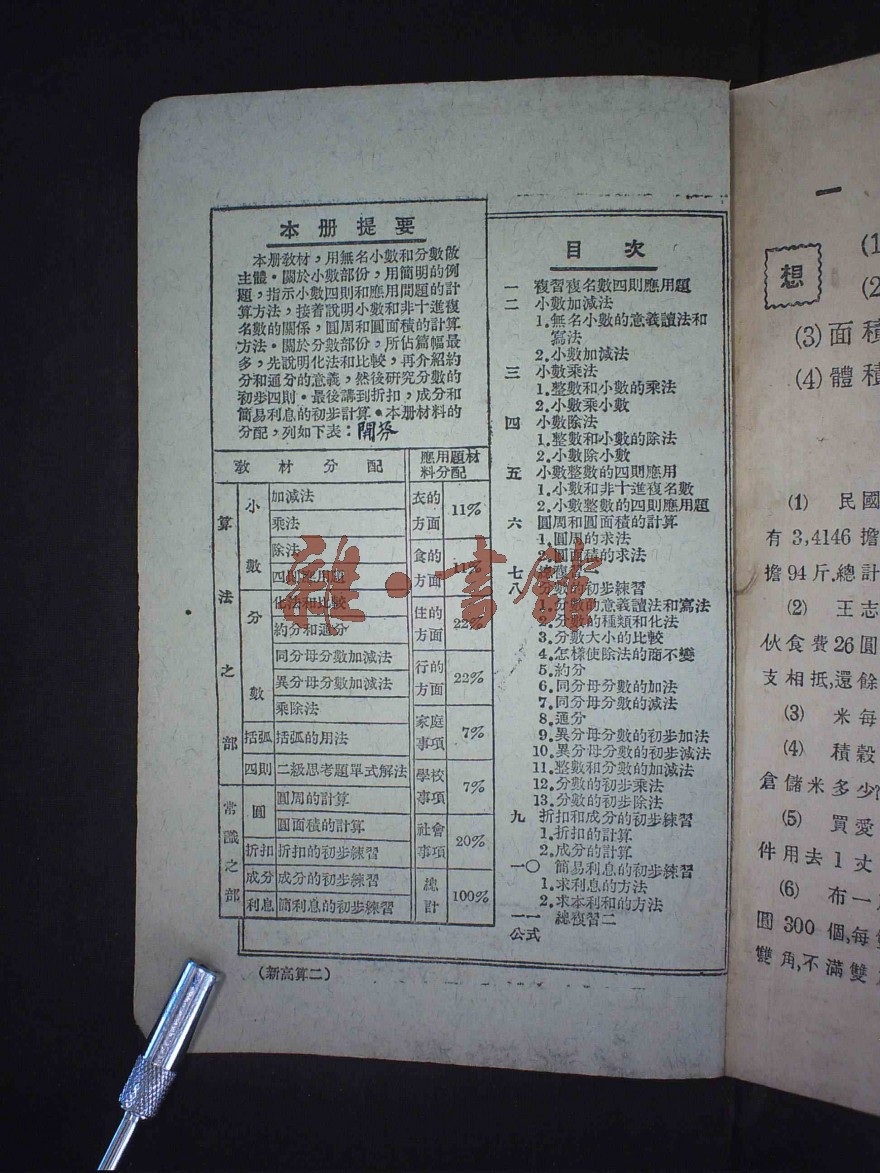 本册提要
本册教材，用無名小數和分數做
主體。關於小數部份，用簡明的例
題，指示小數四則和應用問題的計
算方法，接着說明小數和非十進複
名數的關係，圓周和圓面積的計算
方法。關於分數部份，所佔篇幅最
多，先說明化法和比較，再介紹約
分和通分的意義，然後研究分數的
初步四則。最後講到折扣，成分和
簡易利息的初步計算。本册材料的
分配，列如下表：
教材分配 應用題材料分配
算法之部
小數
加減法
乘法
除法
四則應用題
分數
化法和比較
約分和通分
同分母分數加減法
異分母分數加減法
乘除法
括弧 括弧的用法
四則 二級思考題單式解法
常識之部
圓
圓周的計算
圓面積的計算
折扣 折扣的初步練習
成分 成分的初步練習
利息 簡利息的初步練習
衣的方面 11%
食的方面 11%
住的方面 22%
行的方面 22%
家庭事項 7%
學校事項 7%
社會事項 20%
總計 100%
(新高算二)
目次
一 複習複名數四則應用題
二 小數加減法
1.無名小數的意義讀法和
寫法
2.小數加減法
三 小數乘法
1.整數和小數的乘法
2.小數乘小數
四 小數除法
1.整數和小數的除法
2.小數除小數
五 小數整數的四則應用
1.小數和非十進複名數
2.小數整數的四則應用題
六 圓周和圓面積的計算
1.圓周的求法
2.圓面積的求法
七
八 分數的初步練習
1.分數的意義讀法和寫法
2.分數的種類和化法
3.分數大小的比較
4.怎樣使除法的商不變
5.約分
6.同分母分數的加法
7.同分母分數的減法
8.通分
9.異分母分數的初步加法
10.異分母分數的初步減法
11.整數和分數的加減法
12.分數的初步乘法
13.分數的初步除法
九 折扣和成分的初步練習
1.折扣的計算
2.成分的計算
一〇 簡易利息的初步練習
1.求利息的方法
2.求本利和的方法
一一 總複習二
公式
雜·書館
一
想
(1
(2
(3)面積
(4)體積
(1) 民國
有 3,4146 擔
擔 94 斤,總計
(2) 王志
伙食費 26 圓
支相抵,還餘
(3) 米每
(4) 積穀
倉儲米多少
(5) 買愛
件用去 1 丈
(6) 布一
圓 300 個,每
雙角,不滿雙